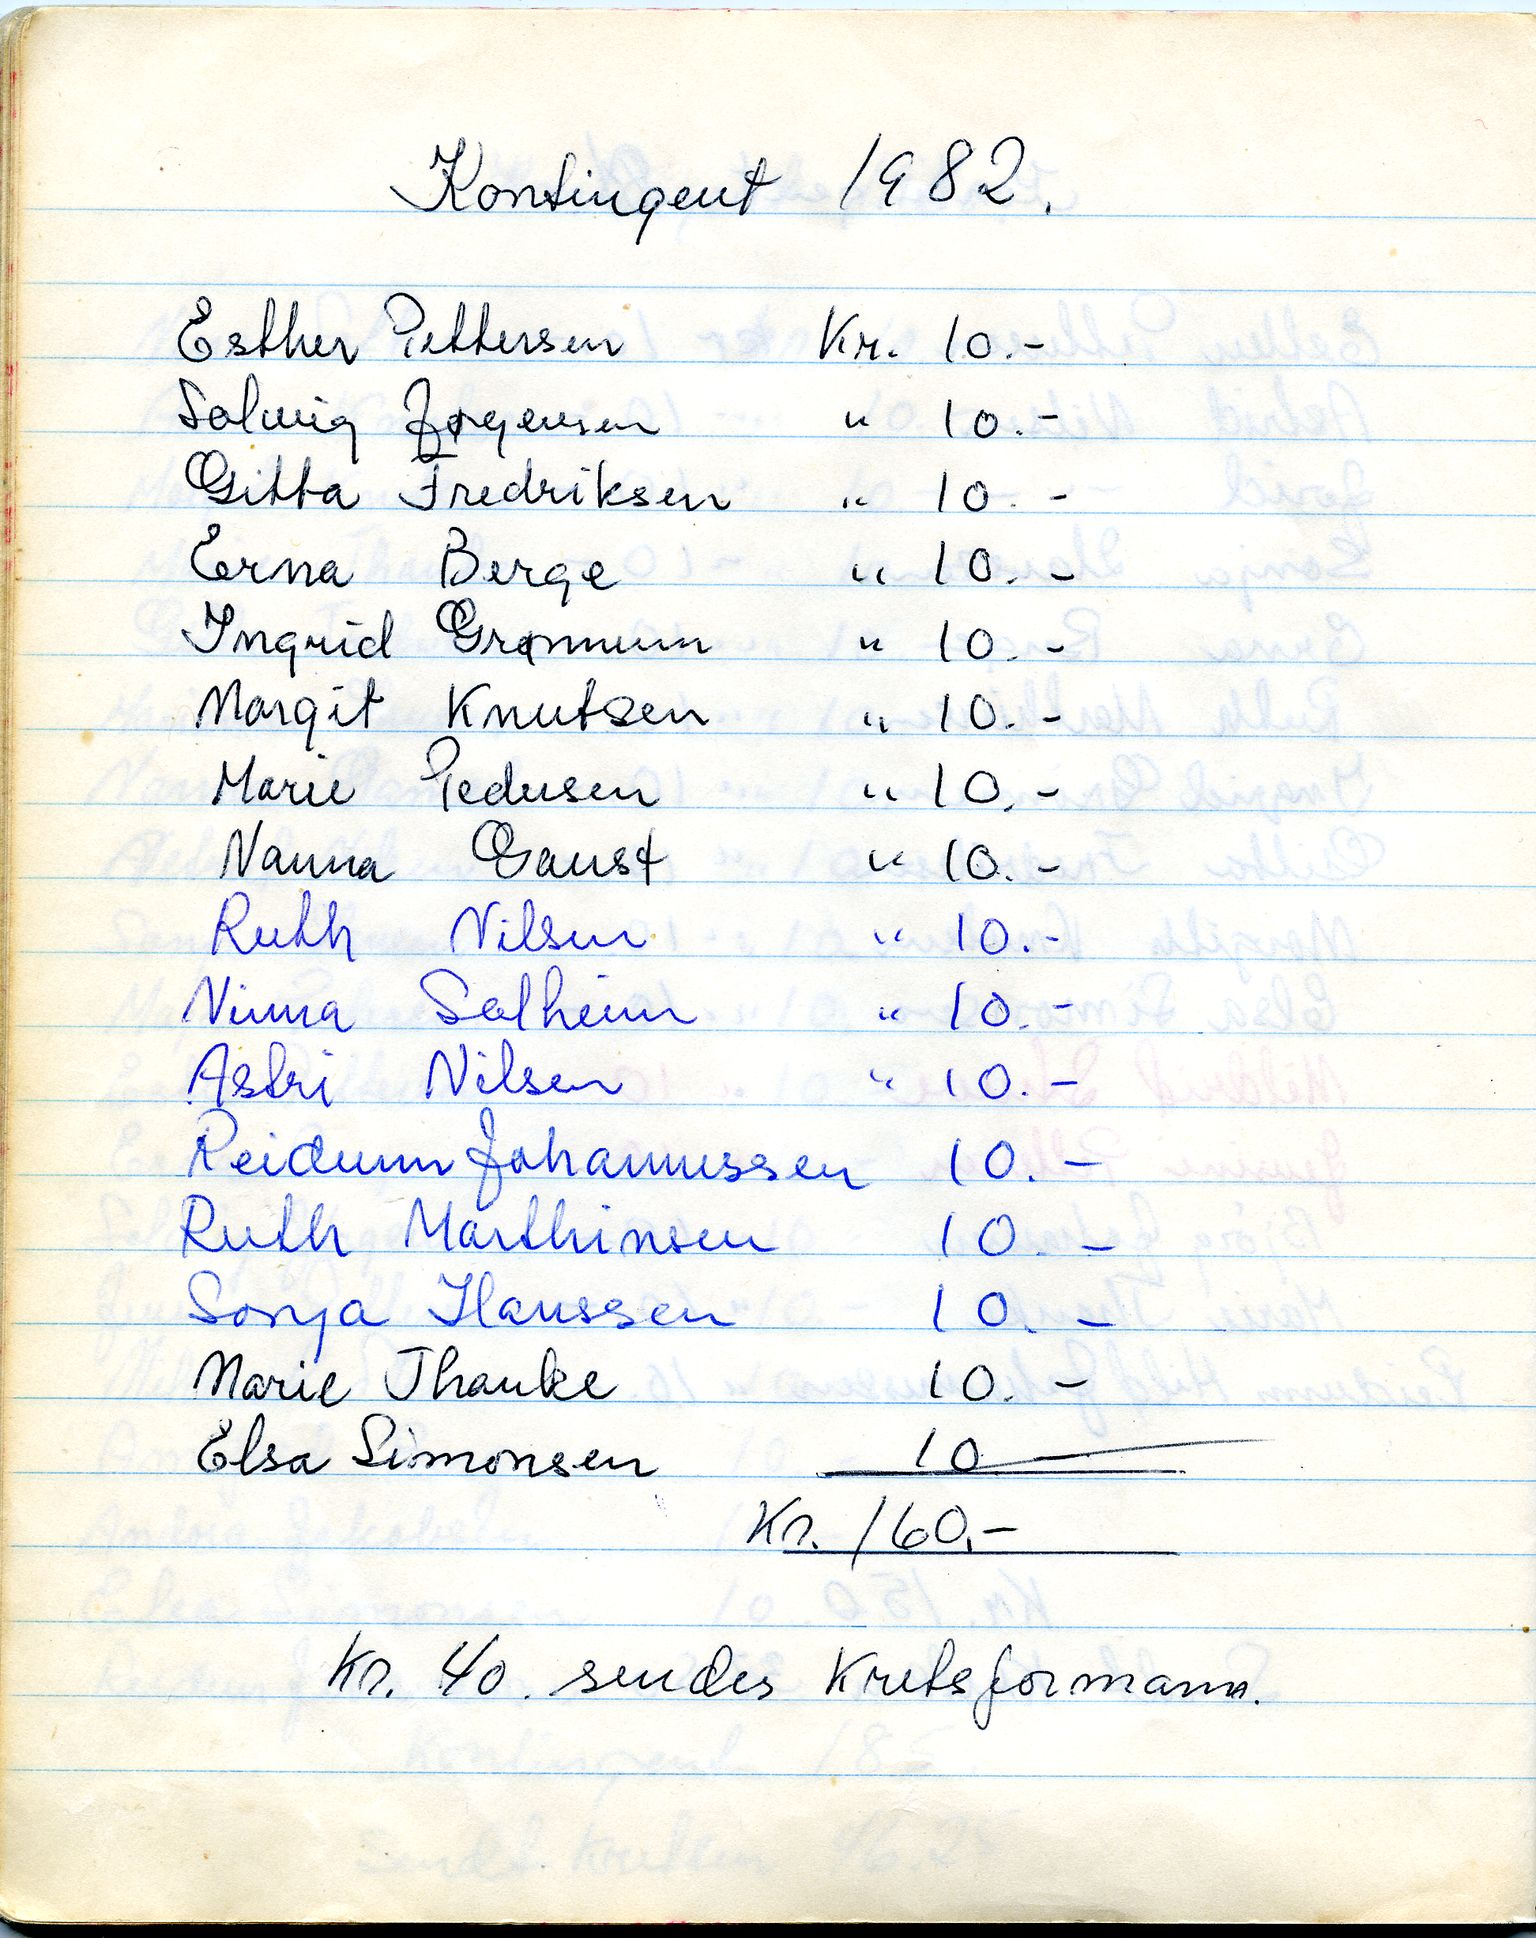 Kontingent 1982.
Esther Pettersen Kr. 10.-
Solveig Jørgensen " 10.-
Gitta Fredriksen " 10.-
Erna Berge " 10.-
Ingrid Grønnum " 10.-
Margit Knutsen " 10.-
Marie Pedersen " 10.-
Nanna Gaust " 10.-
Ruth Nilsen " 10.-
Ninna Solheim " 10.-
Astri Nilsen " 10.-
Reidunn Johannessen 10.-
Ruth Marthinsen 10.-
Sonja Hanssen 10.-
Marie Thanke 10.-
Elsa Simonsen 10 -
Kr. 160.-
Kr. 40. sendes Kretsformann.